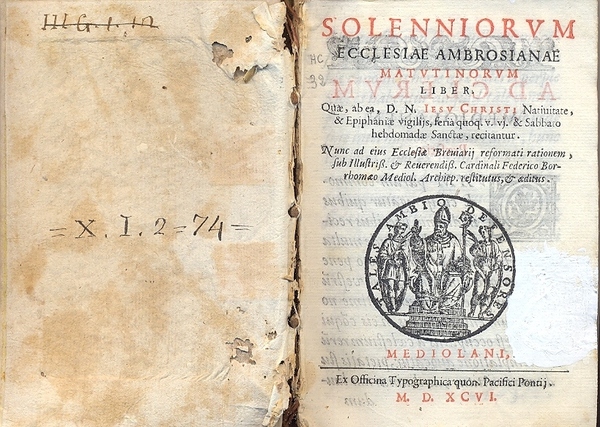 III G. 1. 12
= X. I. 2 = 74 =
HC
SOLENNIORVM
ECCLESIAE AMBROSIANAE
MATVTINORVM
LIBER.
Quæ, ab ea, D. N. IESV CHRISTI Natiuitate,
& Epiphaniæ vigilijs, feria quoq. v. vj. & Sabbato
hebdomadæ Sanctæ, recitantur.
Nunc ad eius Ecclesiæ Breuiarij reformati rationem,
sub Illustriß. & Reuerendiß. Cardinali Federico Bor-
rhomæo Mediol. Archiep. restitutus, & æditus.
TALES AMBIO DEFENSORES
MEDIOLANI,
Ex Officina Typographica quon. Pacifici Pontij.
M. D. XCVI.